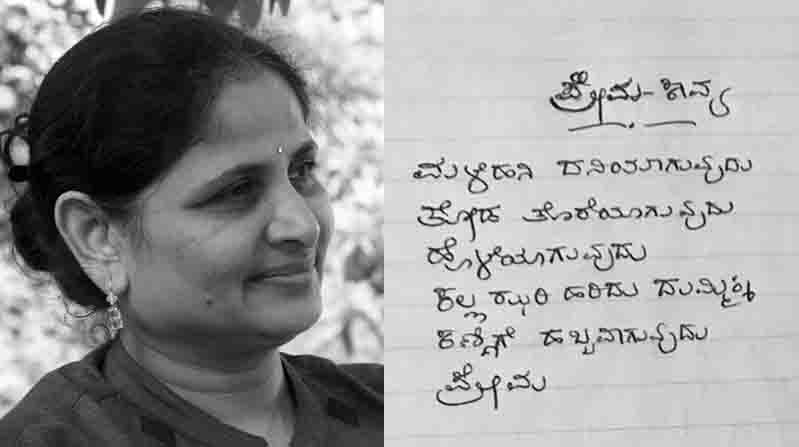 ಪ್ರೇಮ-ಕಾವ್ಯ
ಮಳೆಹನಿ ದನಿಯಾಗುವುದು
ತೋಡ ತೊರೆಯಾಗುವುದು
ಹೊಳೆಯಾಗುವುದು
ಕಲ್ಲ ಝರಿ ಹರಿದು ಧುಮ್ಮಿಕ್ಕಿ
ಕಣ್ಣಿಗೆ ಹಬ್ಬವಾಗುವುದು
ಪ್ರೇಮ